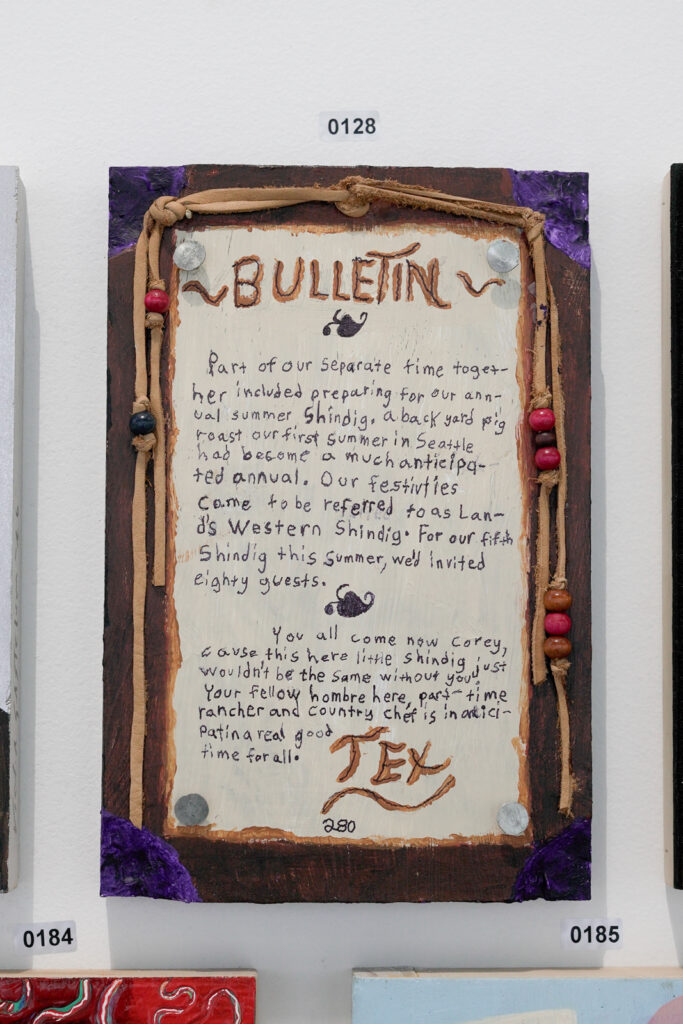 0128
~BULLETIN~
Part of our separate time toget-
her included preparing for our ann-
ual summer Shindig. a back yard pig
roast our first summer in Seattle
had become a much anticipa-
ted annual. Our festivties
came to be referred to as Lan-
d's Western Shindig. For our fifth
Shindig this summer, we'd invited
eighty guests.
You all come now Corey,
cause this here little shindig just
wouldn't be the same without you!
Your fellow hombre here, part-time
rancher and country chef is in antici-
patin a real good
time for all.
TEX
280
0184
0185